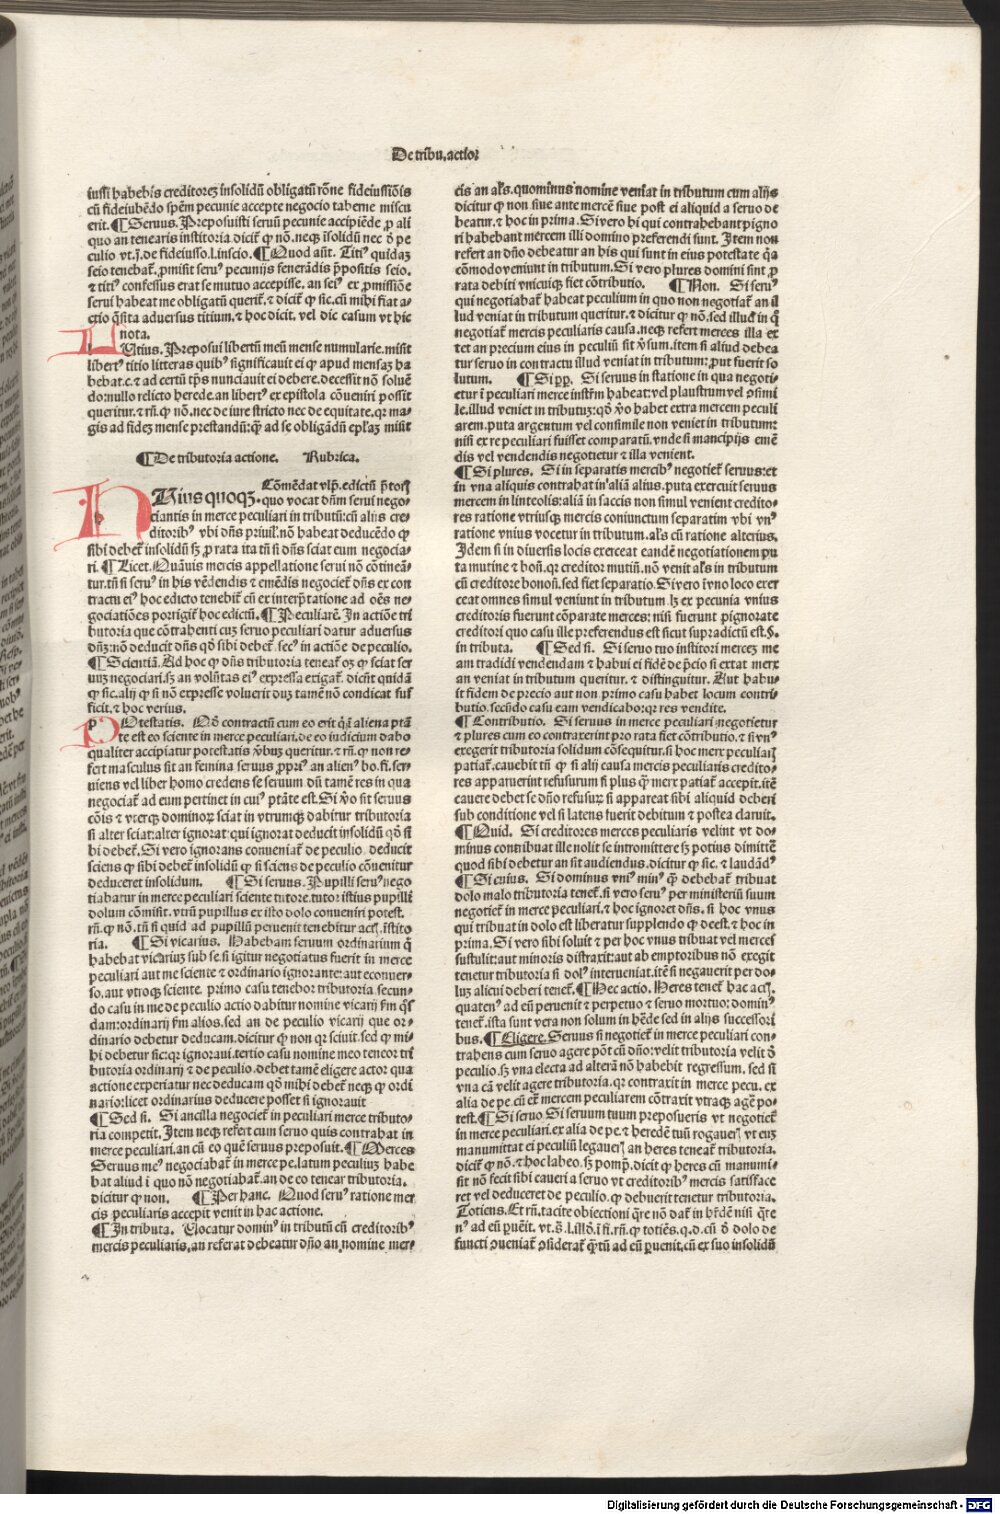 De tribu. actiōe
iussi habebis creditorez insolidū obligatū rōne fideiussiōis
cū fideiubēdo spēm pecunie accepte negocio taberne miscu
erit. ¶ Seruus. Preposuisti seruū pecunie accipiēde ꝓ ali
quo an tenearis institoria. dicit̄ ꝙ nō. neqꝫ īsolidū nec d̄ pe
culio vt. j. de fideiusso. l. inscio. ¶ Quod aūt. Titiꝰ quidaꝫ
seio tenebat̄. ꝓmisit seruꝰ pecunijs fenerādis p̄positis seio.
⁊ titiꝰ confessus erat se mutuo accepisse. an seiꝰ ex ꝓmissiōe
serui habeat me obligatū querit̄. ⁊ dicit̄ ꝙ sic. cū mihi fiat a-
ctio q̄sita aduersus titium. ⁊ hoc dicit. vel dic casum vt hic
nota.
Utius. Preposui libertū meū mense numularie. misit
libertꝰ titio litteras quibꝰ significauit ei ꝙ apud mensaꝫ ha
bebat. c. ⁊ ad certū tp̄s nunciauit ei debere. decessit nō soluē
do: nullo relicto herede. an libertꝰ ex epistola cōueniri possit
queritur. ⁊ rn̄. ꝙ nō. nec de iure stricto nec de equitate. qꝛ ma-
gis ad fideꝫ mense prestandū: ꝙ̄ ad se obligādū ep̄laꝫ misit
¶ De tributoria actione. Rubrica.
Cōmēdat vlp̄. edictū p̄toꝝ
Huius quoqꝫ. quo vocat dn̄m serui nego-
ciantis in merce peculiari in tributū: cū alijs cre-
ditoribꝰ vbi dn̄s priuil̓. nō habeat deducēdo ꝙ
sibi debet̄ insolidū sꝫ ꝓ rata ita tn̄ si dn̄s sciat eum negocia-
ri. ¶ Licet. Quāuis mercis appellatione serui nō cōtineā-
tur. tn̄ si seruꝰ in his vēdendis ⁊ emēdis negociet̄ dn̄s ex con
tractu eiꝰ hoc edicto tenebit̄ cū ex interp̄tatione ad oēs ne-
gociatiōes porrigit̄ hoc edictū. ¶ Peculiarē. In actiōe tri
butoria que cōtrahenti cuꝫ seruo peculiari datur aduersus
dn̄ꝫ: nō deducit dn̄s qd̄ sibi debet̄. secꝰ in actiōe de peculio.
¶ Scientiā. Ad hoc ꝙ dn̄s tributoria teneat̄ oꝫ ꝙ sciat ser
uuꝫ negociari. sꝫ an volūtas eiꝰ expressa exigat̄. dicūt quidā
ꝙ sic. alij ꝙ si nō expresse voluerit duꝫ tamē nō condicat suf
ficit. ⁊ hoc verius.
Otestatis. Qd̄ contractū cum eo erit q̄ ī aliena ptā
te est eo sciente in merce peculiari. de eo iudicium dabo
qualiter accipiatur potestatis v̄buꝫ queritur. ⁊ rn̄. ꝙ non re-
fert masculus sit an femina seruus ꝓpriꝰ an alienꝰ bo. fi. ser-
uiens vel liber homo credens se seruum dū tamē res in qua
negociat̄ ad eum pertinet in cuiꝰ ptāte est. Si v̄o sit seruus
cōis ⁊ vterqꝫ dominoꝝ sciat in vtrumqꝫ dabitur tributoria
si alter sciat: alter ignorat: qui ignorat deducit insolidū qd̄ si
bi debet̄. Si vero ignorans conueniat̄ de peculio. deducit
sciens ꝙ sibi debet̄ insolidū ꝙ si sciens de peculio cōuenitur
deduceret insolidum. ¶ Si seruus. Pupilli seruꝰ nego
tiabatur in merce peculiari sciente tutore. tutor istius pupilli
dolum cōmisit. vtrū pupillus ex isto dolo conueniri potest.
rn̄. ꝙ nō. tn̄ si quid ad pupillū peruenit tenebitur actꝭ. īstito
ria. ¶ Si vicarius. Habebam seruum ordinarium q̄
habebat vicarius sub se. si igitur negotiatus fuerit in merce
peculiari aut me sciente ⁊ ordinario ignorante: aut econuer-
so. aut vtroqꝫ sciente. primo casu tenebor tributoria secun-
do casu in me de peculio actio dabitur nomine vicarij fm̄ q̄s
dam: ordinarij fm̄ alios. sed an de peculio vicarij que or-
dinario debetur deducam. dicitur ꝙ non qꝛ sciuit. sed ꝙ mi-
hi debetur sic: qꝛ ignoraui. tertio casu nomine meo teneor tri
butoria ordinarij ⁊ de peculio. debet tamē eligere actor qua
actione experiatur nec deducam qd̄ mihi debet̄ neqꝫ ꝙ ordi
nario: licet ordinarius deducere posset si ignorauit
¶ Sed si. Si ancilla negociet̄ in peculiari merce tributo-
ria competit. Item neqꝫ refert cum seruo quis contrahat in
merce peculiari. an cū eo quē seruus preposuit. ¶ Merces
Seruus meꝰ negociabat̄ in merce pe. latum peculiuꝫ habe
bat aliud ī quo nō negotiabat̄. an de eo tenear tributoria.
dicitur ꝙ non. ¶ Per hanc. Quod seruꝰ ratione mer
cis peculiaris accepit venit in hac actione.
¶ In tributa. Uocatur dominꝰ in tributū cū creditoribꝰ
mercis peculiaris. an referat debeatur dn̄o an nomine mer-
cis an als. quominus nomine veniat in tributum cum alijs
dicitur ꝙ non siue ante mercē siue post ei aliquid a seruo de
beatur. ⁊ hoc in prima. Si vero hi qui contrahebant pigno
ri habebant mercem illi domino preferendi sunt. Item non
refert an dn̄o debeatur an his qui sunt in eius potestate q̄a
cōmodo veniunt in tributum. Si vero plures domini sint ꝓ
rata debiti vnicuiqꝫ fiet cōtributio. ¶ Non. Si seruꝰ
qui negotiabat̄ habeat peculium in quo non negotiat̄ an il
lud veniat in tributum queritur. ⁊ dicitur ꝙ nō. sed illud in q̄
negotiat̄ mercis peculiaris causa. neqꝫ refert merces illa ex
tet an precium eius in peculiū sit v̄sum. item si aliud debea
tur seruo in contractu illud veniat in tributum: ꝓut fuerit so
lutum. ¶ Si ꝓp. Si seruus in statione in qua negoti-
etur ī peculiari merce instr̄m habeat: vel plaustrum vel ꝯsimi
le. illud veniet in tributuꝫ: qd̄ v̄o habet extra mercem peculi
arem. puta argentum vel consimile non veniet in tributum:
nisi ex re peculiari fuisset comparatū. vnde si mancipijs emē
dis vel vendendis negotietur ⁊ illa venient.
¶ Si plures. Si in separatis mercibꝰ negotiet̄ seruus: et
in vna aliquis contrahat in aliā alius. puta exercuit seruus
mercem in linteolis: aliā in saccis non simul venient credito-
res ratione vtriusqꝫ mercis coniunctum separatim vbi vnꝰ
ratione vnius vocetur in tributum. als cū ratione alterius.
Idem si in diuersis locis exerceat eandē negotiationem pu
ta mutine ⁊ bon̄. qꝛ creditor mutin̄. nō venit als in tributum
cū creditore bonon̄. sed fiet separatio. Si vero ī vno loco exer
ceat omnes simul veniunt in tributum. lꝫ ex pecunia vnius
creditoris fuerunt cōparate merces: nisi fuerunt pignorate
creditori quo casu ille preferendus est sicut supradictū est. §.
in tributa. ¶ Sed si. Si seruo tuo institori mercez me
am tradidi vendendam ⁊ habui ei fidē de p̄cio si extat merx
an veniat in tributum queritur. ⁊ distinguitur. Aut habu-
it fidem de precio aut non. primo casu habet locum contri
butio. secūdo casu eam vendicabo: qꝛ res vendite.
¶ Contributio. Si seruus in merce peculiari negotietur
⁊ plures cum eo contraxerint pro rata fiet cōtributio. ⁊ si vnꝰ
exegerit tributoria solidum cōsequitur. si hoc merx peculiaꝝ
patiat̄. cauebit tn̄ ꝙ si alij causa mercis peculiaris credito-
res apparuerint refusurum si plus ꝙ̄ merx patiat̄ accepit. itē
cauere debet se dn̄o refusuꝝ si appareat sibi aliquid deberi
sub conditione vel si latens fuerit debitum ⁊ postea claruit.
¶ Quid. Si creditores merces peculiaris velint vt do-
minus contribuat ille nolit se intromittere sꝫ potius dimittē
quod sibi debetur an sit audiendus. dicitur ꝙ sic. ⁊ laudādꝰ
¶ Si cuius. Si dominus vniꝰ minꝰ ꝙ̄ debebat̄ tribuat
dolo malo tributoria tenet̄. si vero seruꝰ per ministeriū suum
negotiet̄ in merce peculiari. ⁊ hoc ignoret dn̄s. si hoc vnus
qui tribuat in dolo est liberatur supplendo ꝙ deest. ⁊ hoc in
prima. Si vero sibi soluit ⁊ per hoc vnus tribuat vel merces
sustulit: aut minoris distraxit: aut ab emptoribus nō exegit
tenetur tributoria si dolꝰ interueniat. itē si negauerit per do-
luꝫ alicui deberi tenet̄. ¶ Hec actio. Heres tenet̄ hac actꝭ.
quatenꝰ ad eū peruenit ⁊ perpetuo ⁊ seruo mortuo: dominꝰ
tenet̄. ista sunt vera non solum in hēde sed in alijs successori
bus. ¶ Eligere. Seruus si negotiet̄ in merce peculiari con-
trahens cum seruo agere pōt cū dn̄o: velit tributoria velit d̄
peculio. sꝫ vna electa ad alterā nō habebit regressum. sed si
vna cā velit agere tributoria. qꝛ contraxit in merce pecu. ex
alia de pe. cū et̄ mercem peculiarem cōtraxit vtraqꝫ agē po-
test. ¶ Si seruo Si seruum tuum preposueris vt negotiet̄
in merce peculiari. ex alia de pe. ⁊ heredē tuū rogaueꝭ vt euꝫ
manumittat ei peculiū legaueꝭ an heres teneat̄ tributoria.
dicit̄ ꝙ nō. ⁊ hoc labeo. sꝫ pomp̄. dicit ꝙ heres cū manumi-
sit nō fecit sibi caueri a seruo vt creditoribꝰ mercis satisface
ret vel deduceret de peculio. ꝙ debuerit tenetur tributoria.
Totiens. Et rn̄. tacite obiectioni q̄re nō dat̄ in hēdē nisi q̄te
nꝰ ad eū ꝑuēit. vt. s̄. l. illō. ī fi. rn̄. ꝙ totiēs. q. d. cū d̄ dolo de
functi ꝯueniat̄ ꝯsiderat̄ q̄tū ad eū ꝑuenit. cū ex suo insolidū
Digitalisierung gefördert durch die Deutsche Forschungsgemeinschaft - DFG